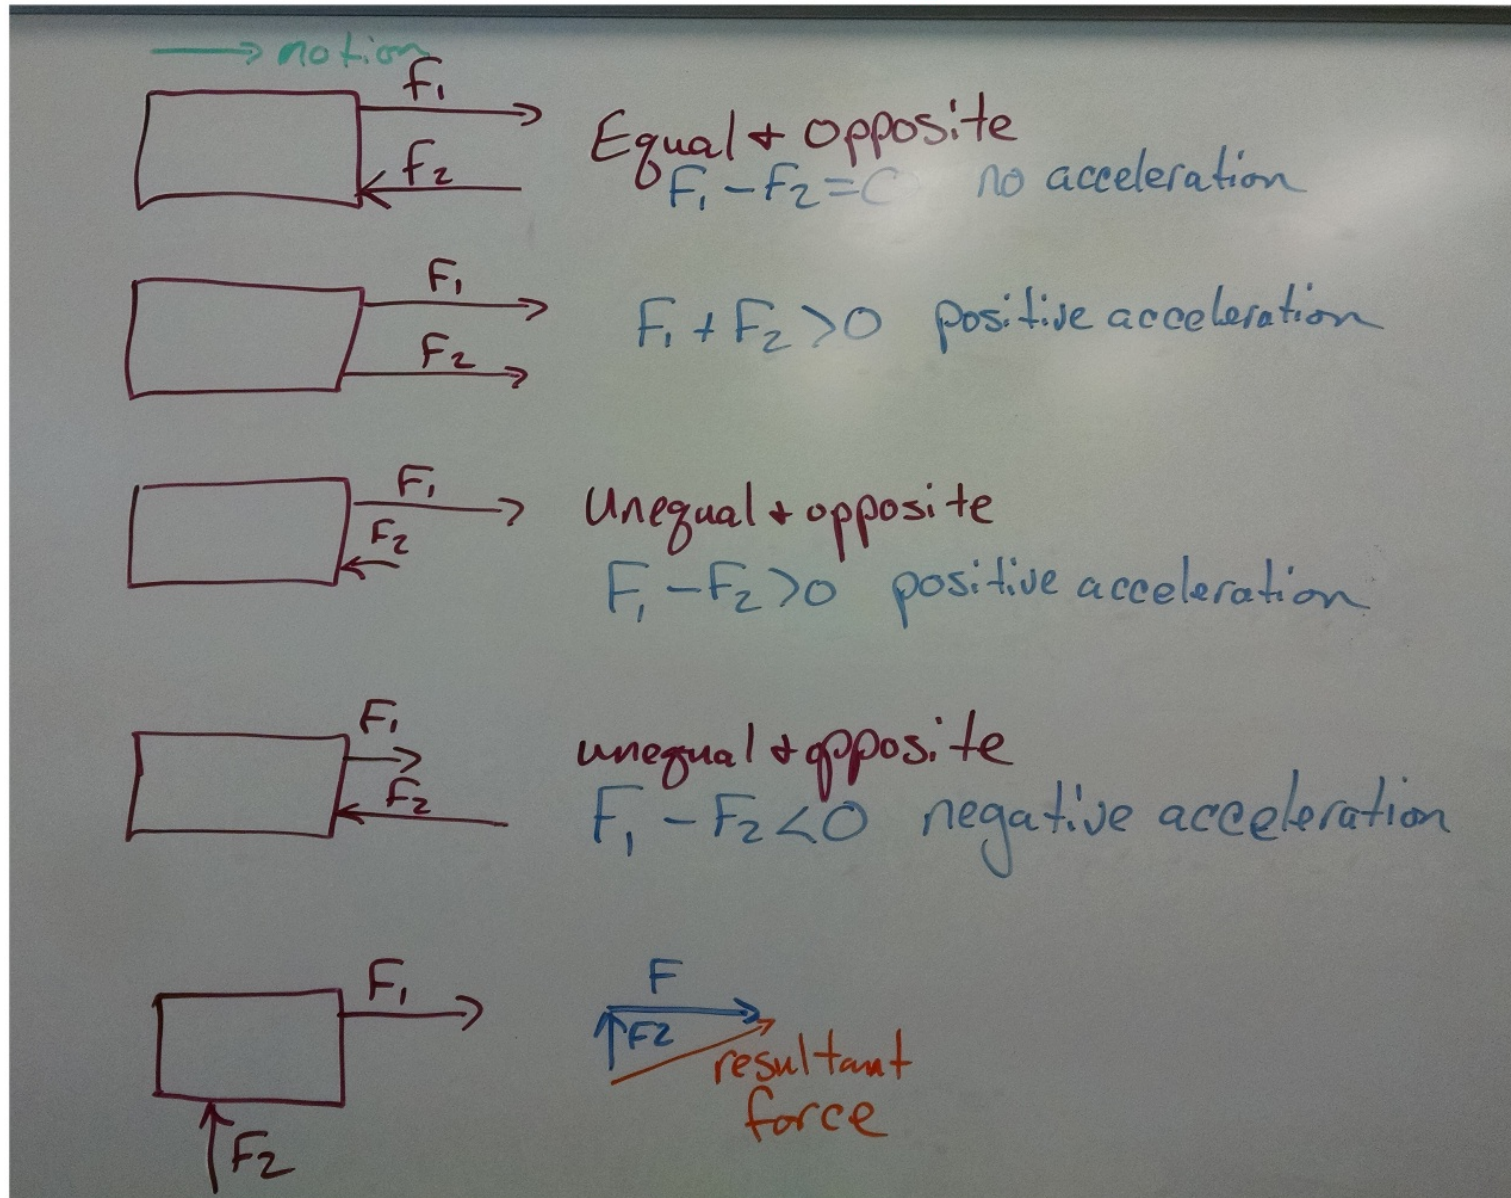 motion
F₁
Equal + opposite
F₂
F₁ - F₂ = 0 no acceleration
F₁
F₁ + F₂ > 0 positive acceleration
F₂
F₁
Unequal + opposite
F₂
F₁ - F₂ > 0 positive acceleration
F₁
unequal + opposite
F₂
F₁ - F₂ < 0 negative acceleration
F₁
F
F2
resultant
force
F₂